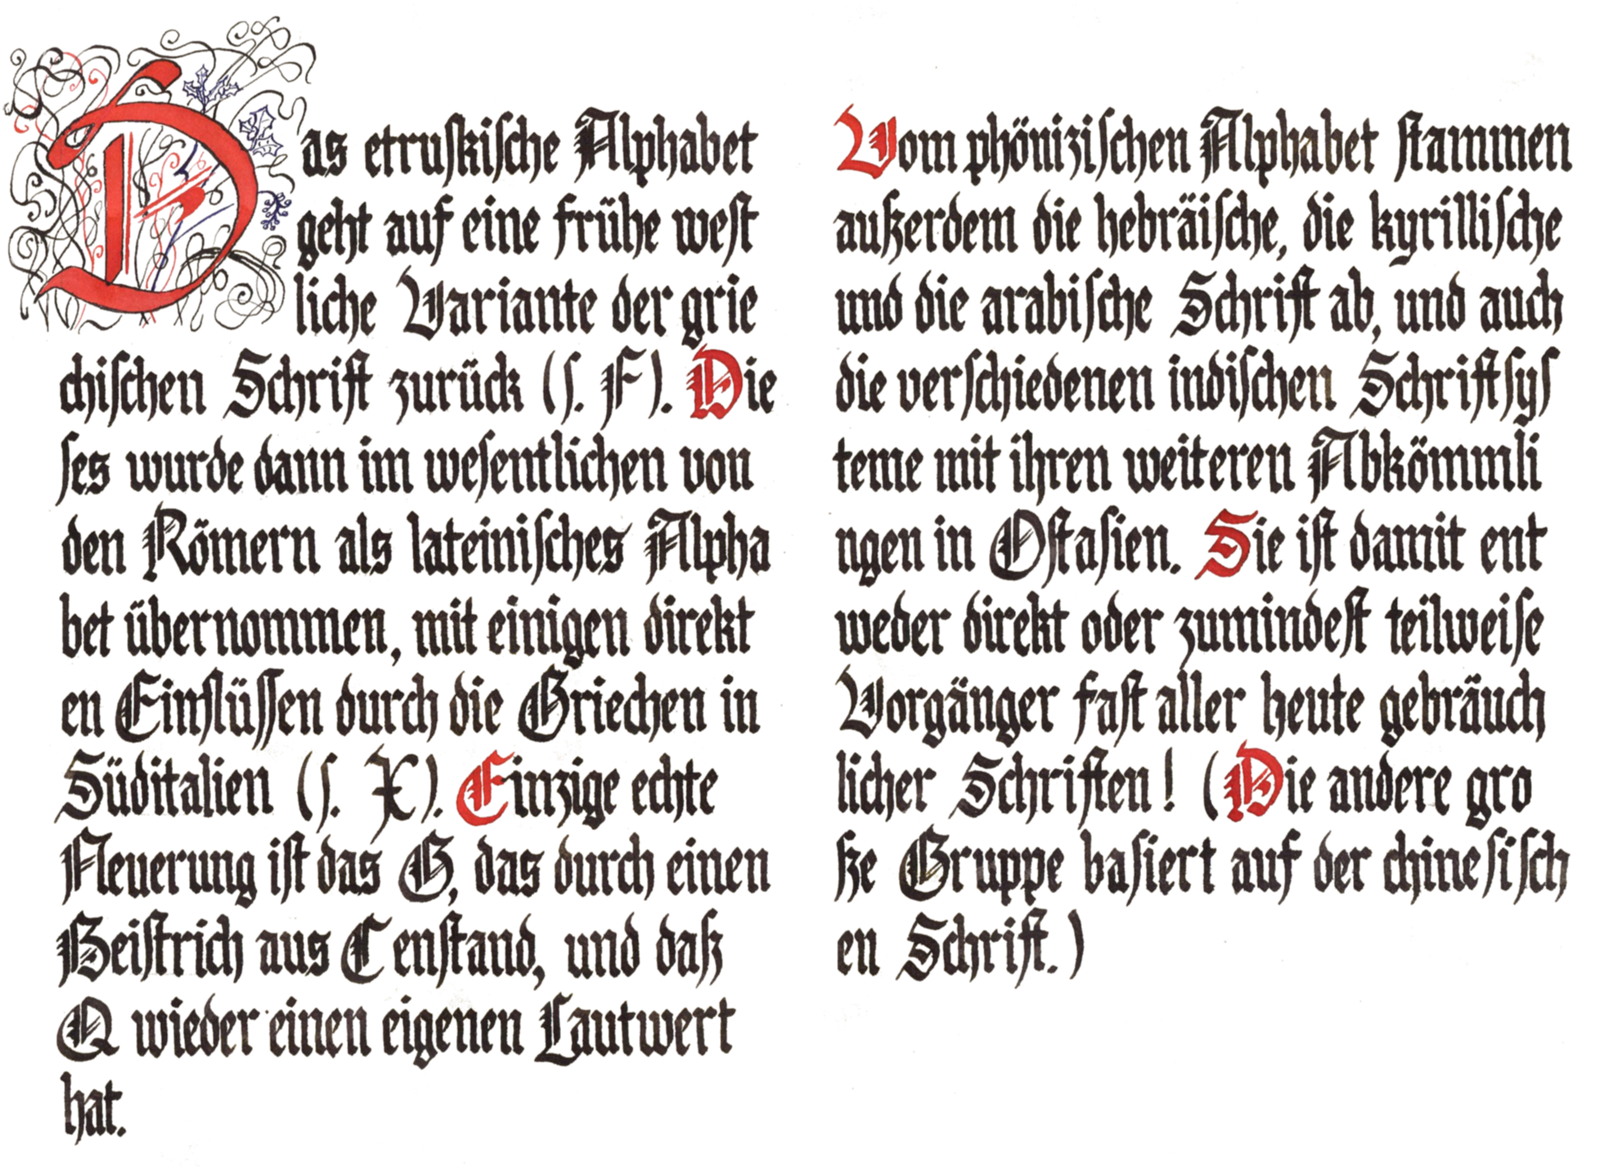 Das etruſkiſche Alphabet
geht auf eine frühe weſt
liche Variante der grie
chiſchen Schrift zurück (ſ. F). Die
ſes wurde dann im weſentlichen von
den Römern als lateiniſches Alpha
bet übernommen, mit einigen direkt
en Einflüſſen durch die Griechen in
Süditalien (ſ. X). Einzige echte
Neuerung iſt das G, das durch einen
Beiſtrich aus C enſtand, und daß
Q wieder einen eigenen Lautwert
hat.
Vom phöniziſchen Alphabet ſtammen
außerdem die hebräiſche, die kyrilliſche
und die arabiſche Schrift ab, und auch
die verſchiedenen indiſchen Schriftſyſ
teme mit ihren weiteren Abkömmli
ngen in Oſtaſien. Sie iſt damit ent
weder direkt oder zumindeſt teilweiſe
Vorgänger faſt aller heute gebräuch
licher Schriften! (Die andere gro
ße Gruppe baſiert auf der chineſiſch
en Schrift.)